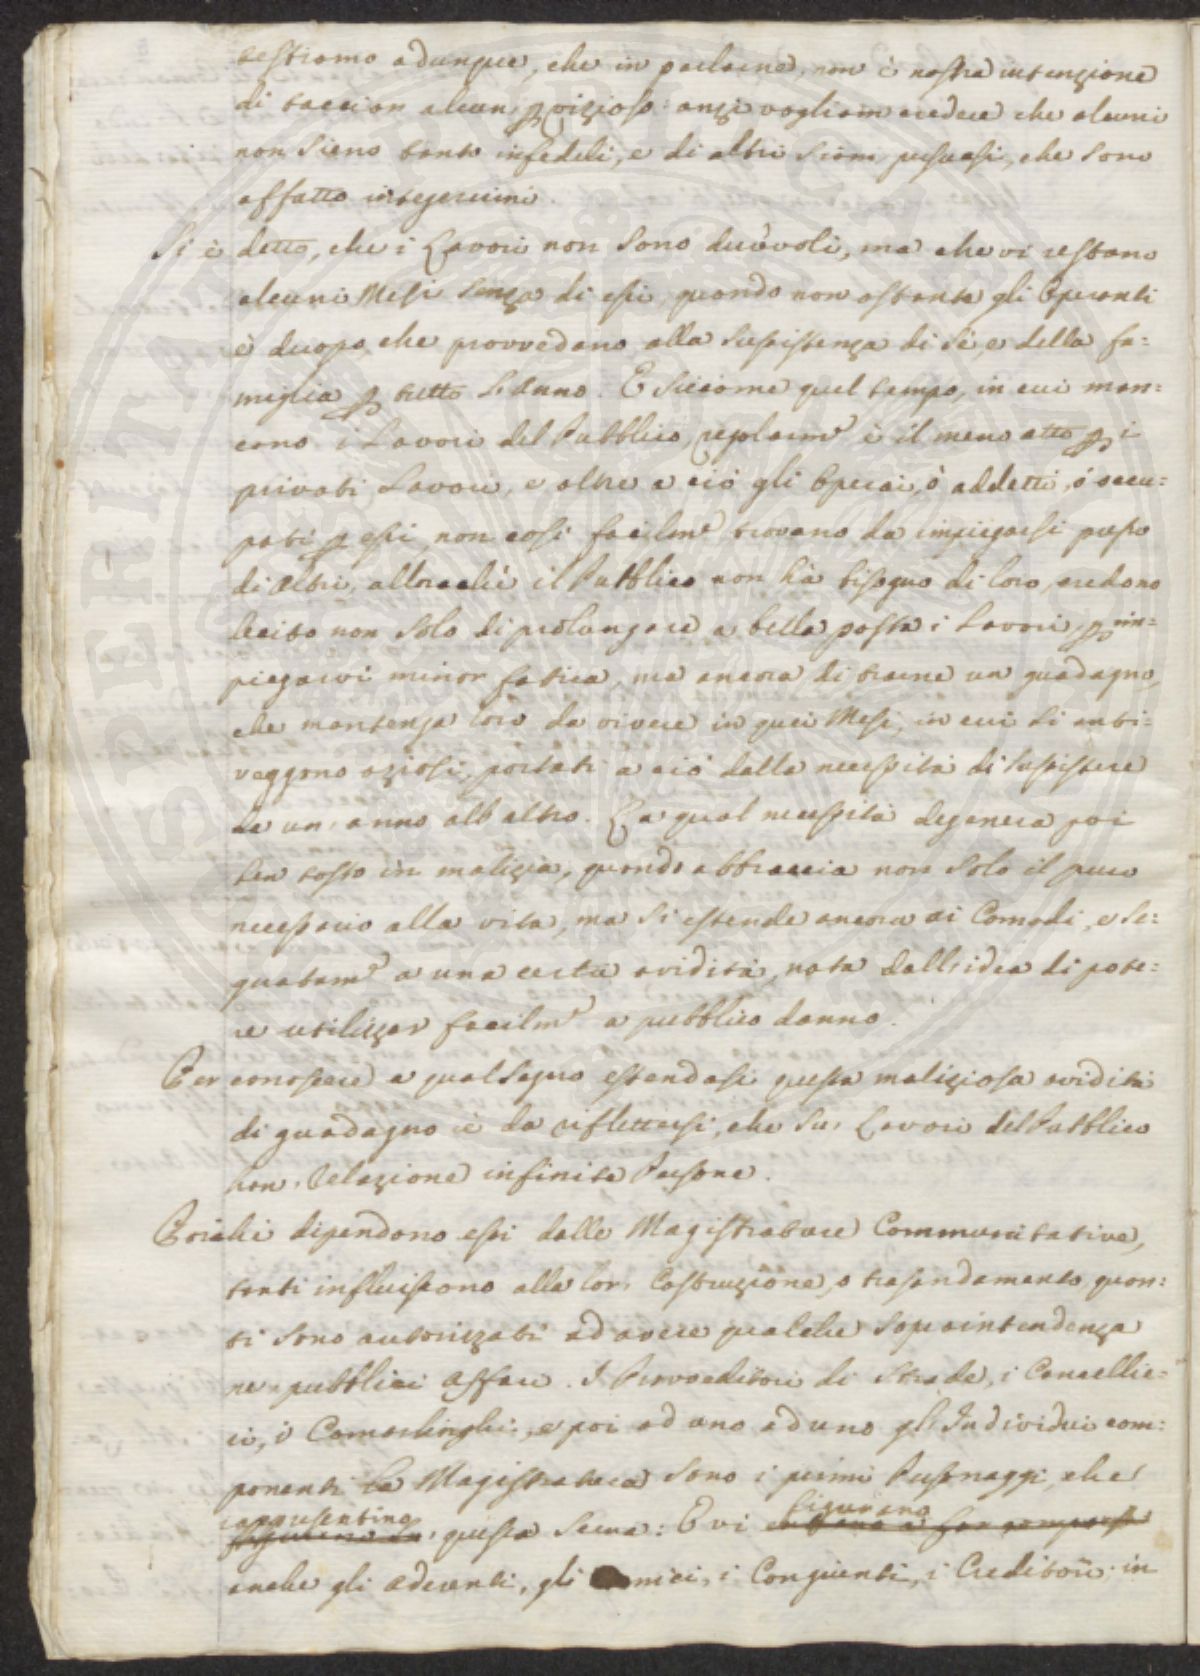 testiamo adunque, che in parlarne, non è nostra intenzione
di tacciar alcun p vizioso: anzi vogliam credere che alcuni
non sieno tanto infedeli, e di altri siam persuasi, che sono
affatto integerrimi.
Si è detto, che i Lavori non sono durevoli, ma che vi restano
alcuni Mesi senza di essi, quando non ostante gli Operanti
è duopo che provvedano alla sussistenza di sè, e della fa=
miglia p tutto l'Anno. E siccome quel tempo, in cui man=
cano i Lavori del Pubblico, regolarme è il meno atto p i
privati Lavori, e oltre a ciò gli Operai, ò addetti, ó occu=
pati p essi, non così facilme trovano da impiegarsi presso
di Altri, allorachè il Pubblico non hà bisogno di loro, credono
lecito non solo di prolungare a bella posta i Lavori, p im=
piegarvi minor fatica, ma ancora di trarne un guadagno,
che mantenga loro da vivere in quei Mesi, in cui si anti=
veggono oziosi, portati a ciò dalla necessità di sussistere
da un' anno all' altro. La qual necessità degenera poi
ben tosto in malizia, quando abbraccia non solo il puro
necessario alla vita, ma si estende ancora ai Comodi, e se=
gnatame a una certa avidità, nata dall'idea di pote=
re utilizzar facilme a pubblico danno.
Per conoscere a qual segno estendasi questa maliziosa avidità
di guadagno è da riflettersi, che su' Lavori del Pubblico
han' Relazione infinite Persone.
Poichè dipendono essi dalle Magistrature Communitative,
tanti influiscono alla lor' Costruzione, o trasandamento, quan=
ti sono autorizzati ad avere qualche sopraintendenza
ne' pubblici Affari. I Provveditori di Strade, i Cancellie=
ri, i Camarlinghi, e poi ad uno ad uno gl' Individui com=
ponenti la Magistratura sono i primi Personaggi, che
rappresentino figurano
questa Scena: E vi
anche gli Aderenti, gli Amici, i Congiunti, i Creditori: in